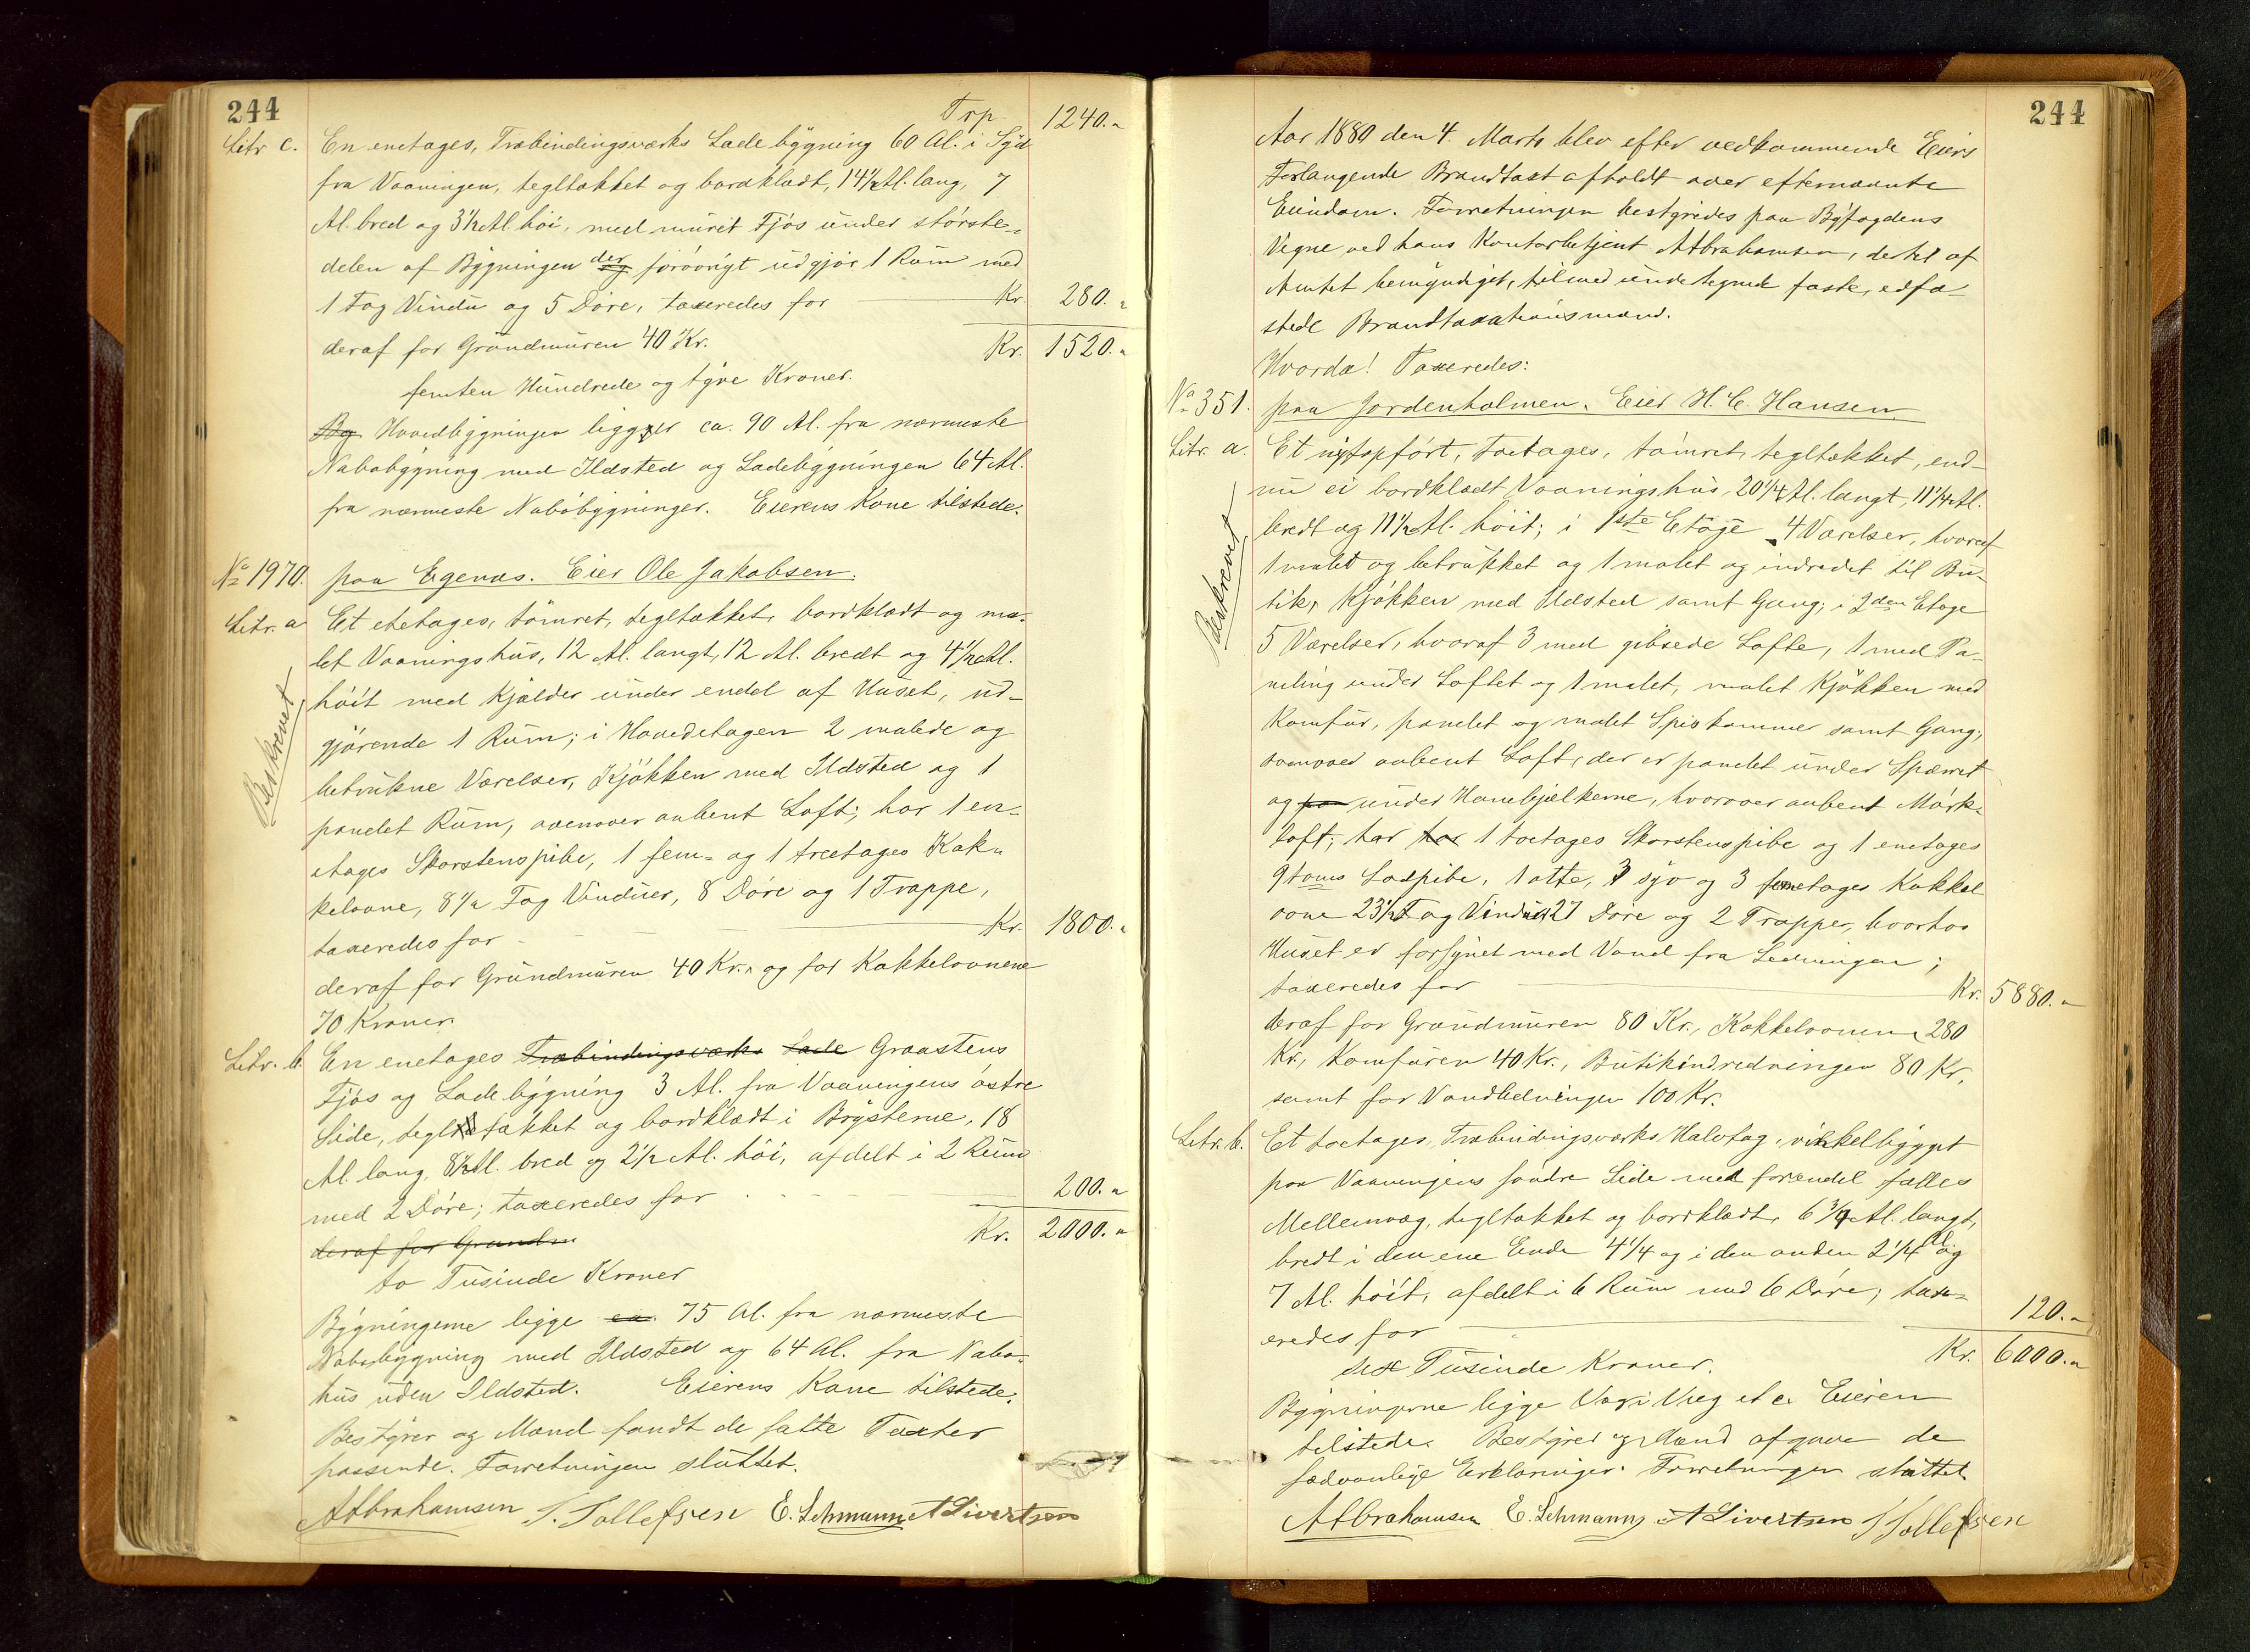 244
Trp. 1240.„
Litr c. En enetages, Træbindingsværks Ladebygning 60 Al. i Syd
fra Vaaningen, tegltækket og bordklædt, 14½ Al. lang, 7
Al. bred og 3½ Al. høi, med muret Fjøs under største-
delen af Bygningen der forøvrigt udgjør 1 Rum med
1 Fag Vindu og 5 Døre, taxeredes for Kr. 280.„
deraf for Grundmuren 40 Kr. Kr. 1520.„
femten Hundrede og tyve Kroner.
Hovedbygningen ligger ca. 90 Al. fra nærmeste
Nabobygning med Ildsted og Ladebygningen 64 Al.
fra nærmeste Nabobygninger. Eierens Kone tilstede.
No 1970. paa Egenæs. Eier Ole Jakobsen.
Litr. a Et etetages, tømret, tegltækket, bordklædt og ma-
let Vaaningshus, 12 Al. langt, 12 Al. bredt og 4½ Al.
høit med Kjælder under endel af Huset, ud-
gjørende 1 Rum; i Hovedetagen 2 malede og
Beskrevet
betrukne Værelser, Kjøkken med Ildsted og 1
panelet Rum, ovenover aabent Loft; har 1 en-
etages Skorstenspibe, 1 fem- og 1 treetages Kak-
kelovne, 8½ Fag Vinduer, 8 Døre og 1 Trappe,
taxeredes for Kr. 1800.„
deraf for Grundmuren 40 Kr. og for Kakkelovnene
70 Kroner.
Litr. b. En enetages Træbindingsværks Lade Graastens
Fjøs og Ladebygning 3 Al. fra Vaaningens østre
Side, tegltækket og bordklædt i Brysterne, 18
Al. lang, 8½ Al. bred og 2½ Al. høi, afdelt i 2 Rum
med 2 Døre; taxeredes for 200.„
deraf for Grundm Kr. 2000.„
to Tusinde Kroner
Bygningerne ligge ca. 75 Al. fra nærmeste
Nabobygning med Ildsted og 64 Al. fra Nabo-
hus uden Ildsted. Eierens Kone tilstede.
Bestyrer og Mænd fandt de satte Taxter
passende. Forretningen sluttet.
A Abrahamsen T. Tollefsen E. Lehmann A Sivertsen
244
Aar 1880 den 4. Marts blev efter vedkommende Eiers
Forlangende Brandtaxt afholdt over efternævnte
Eiendom. Forretningen bestyredes paa Byfogdens
Vegne ved hans Kontorbetjent A Abrahamsen, dertil af
Amtet bemyndiget, tilmed undertegnede faste, edfæ-
stede Brandtaxationsmænd.
Hvorda! Taxeredes:
No 351. paa Jordenholmen. Eier H. C. Hansen
Litr. a. Et nyopført, toetages, tømret, tegltækket, end-
nu ei bordklædt Vaaningshus, 20¼ Al. langt, 11¼ Al.
bredt og 11½ Al. høit; i 1ste Etage 4 Værelser, hvoraf
1 malet og betrukket og 1 malet og indredet til Bu-
Beskrevet
tik, Kjøkken med Ildsted samt Gang; i 2den Etage
5 Værelser, hvoraf 3 med gibsede Lofte, 1 med Pa-
neling under Loftet og 1 malet, malet Kjøkken med
Komfur, panelet og malet Spiskammer samt Gang,
ovenover aabent Loft, der er panelet under Spærret
og paa under Hanebjælkerne, hvorover aabent Mørk-
loft; har har 1 toetages Skorstenspibe og 1 enetages
9 toms Lodpibe, 1 otte, 3 syv og 3 femetages Kakkel
ovne 23½ Fag Vinduer 27 Døre og 2 Trapper, hvorhos
Huset er forsynet med Vand fra Ledningen;
taxeredes for Kr. 5880.„
deraf for Grundmuren 80 Kr., Kakkelovnene 280
Kr., Komfuren 40 Kr., Butikindredningen 80 Kr.
samt for Vandledningen 100 Kr.
Litr. b. Et toetages, Træbindingsværks Halvtag, vinkelbygget
paa Vaaningens søndre Side med forendel fælles
Mellemvæg, tegltækket og bordklædt, 6¾ Al. langt,
bredt i den ene Ende 4¼ og i den anden 2¼ Al og
7 Al. høit, afdelt i 6 Rum med 6 Døre; tax-
eredes for 120.„
sex Tusinde Kroner. Kr. 6000.„
Bygningerne ligge Væg i Væg etc. Eieren
tilstede. Bestyrer og Mænd afgave de
sædvanlige Erklæringer. Forretningen sluttet.
A Abrahamsen E. Lehmann A Sivertsen T Tollefsen